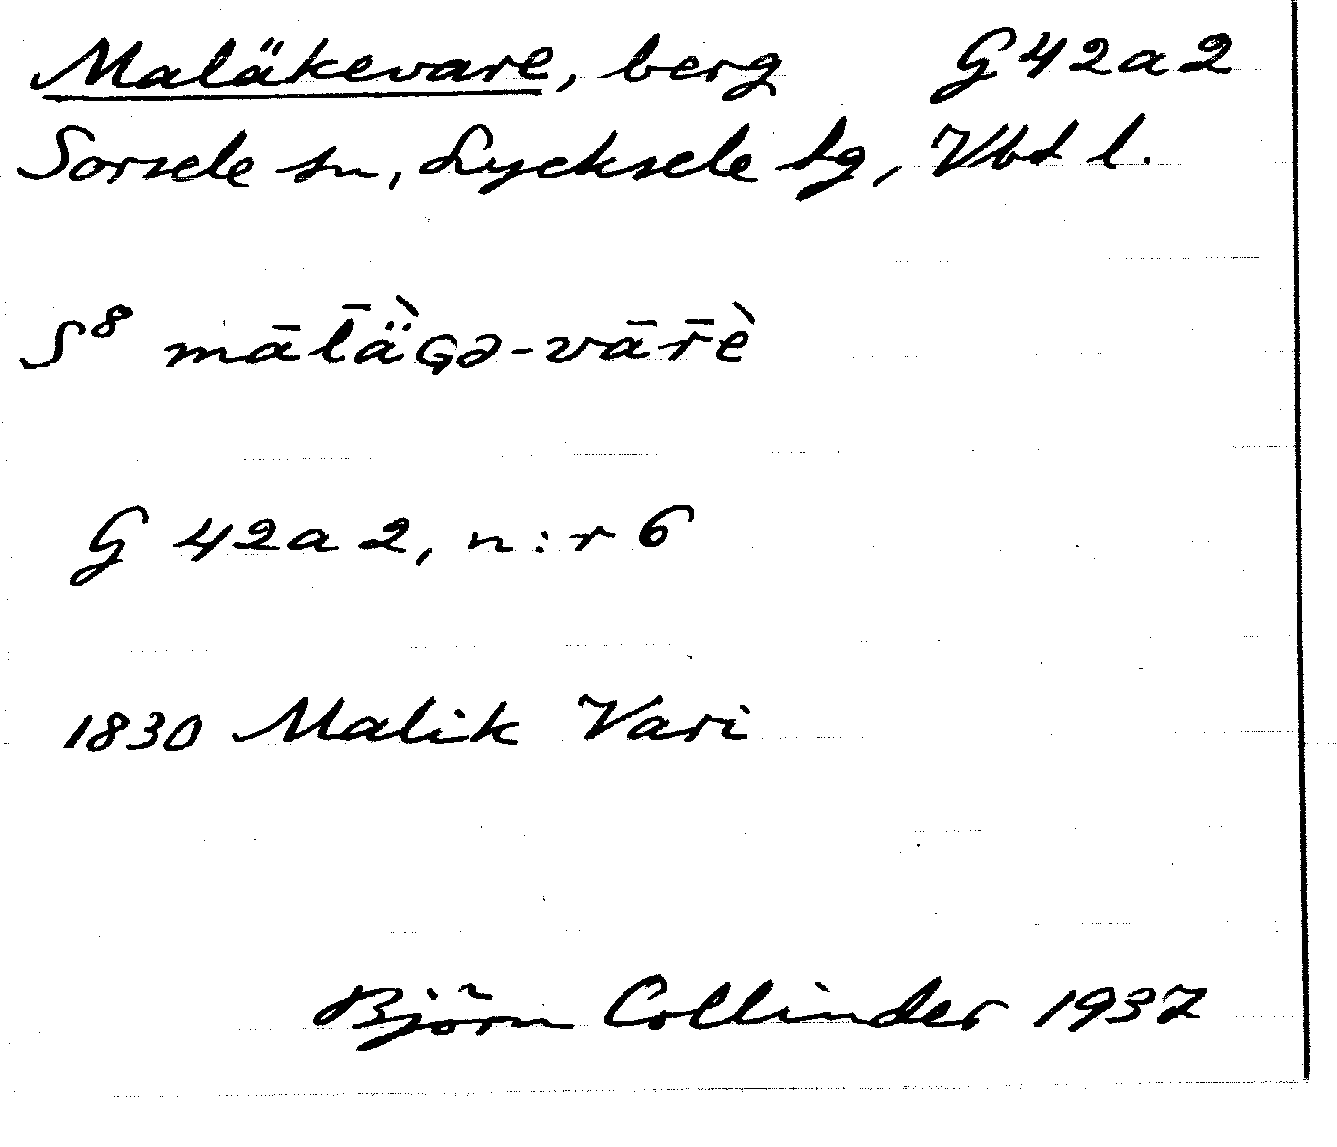 Maläkevare, berg G42a2
Sorsele sn, Lycksele lg, Vbd l.
S⁸ mālā̈̀ɢə-vār̄è
G 42a2, n:r 6
1830 Malik Vari
Björn Collinder 1937